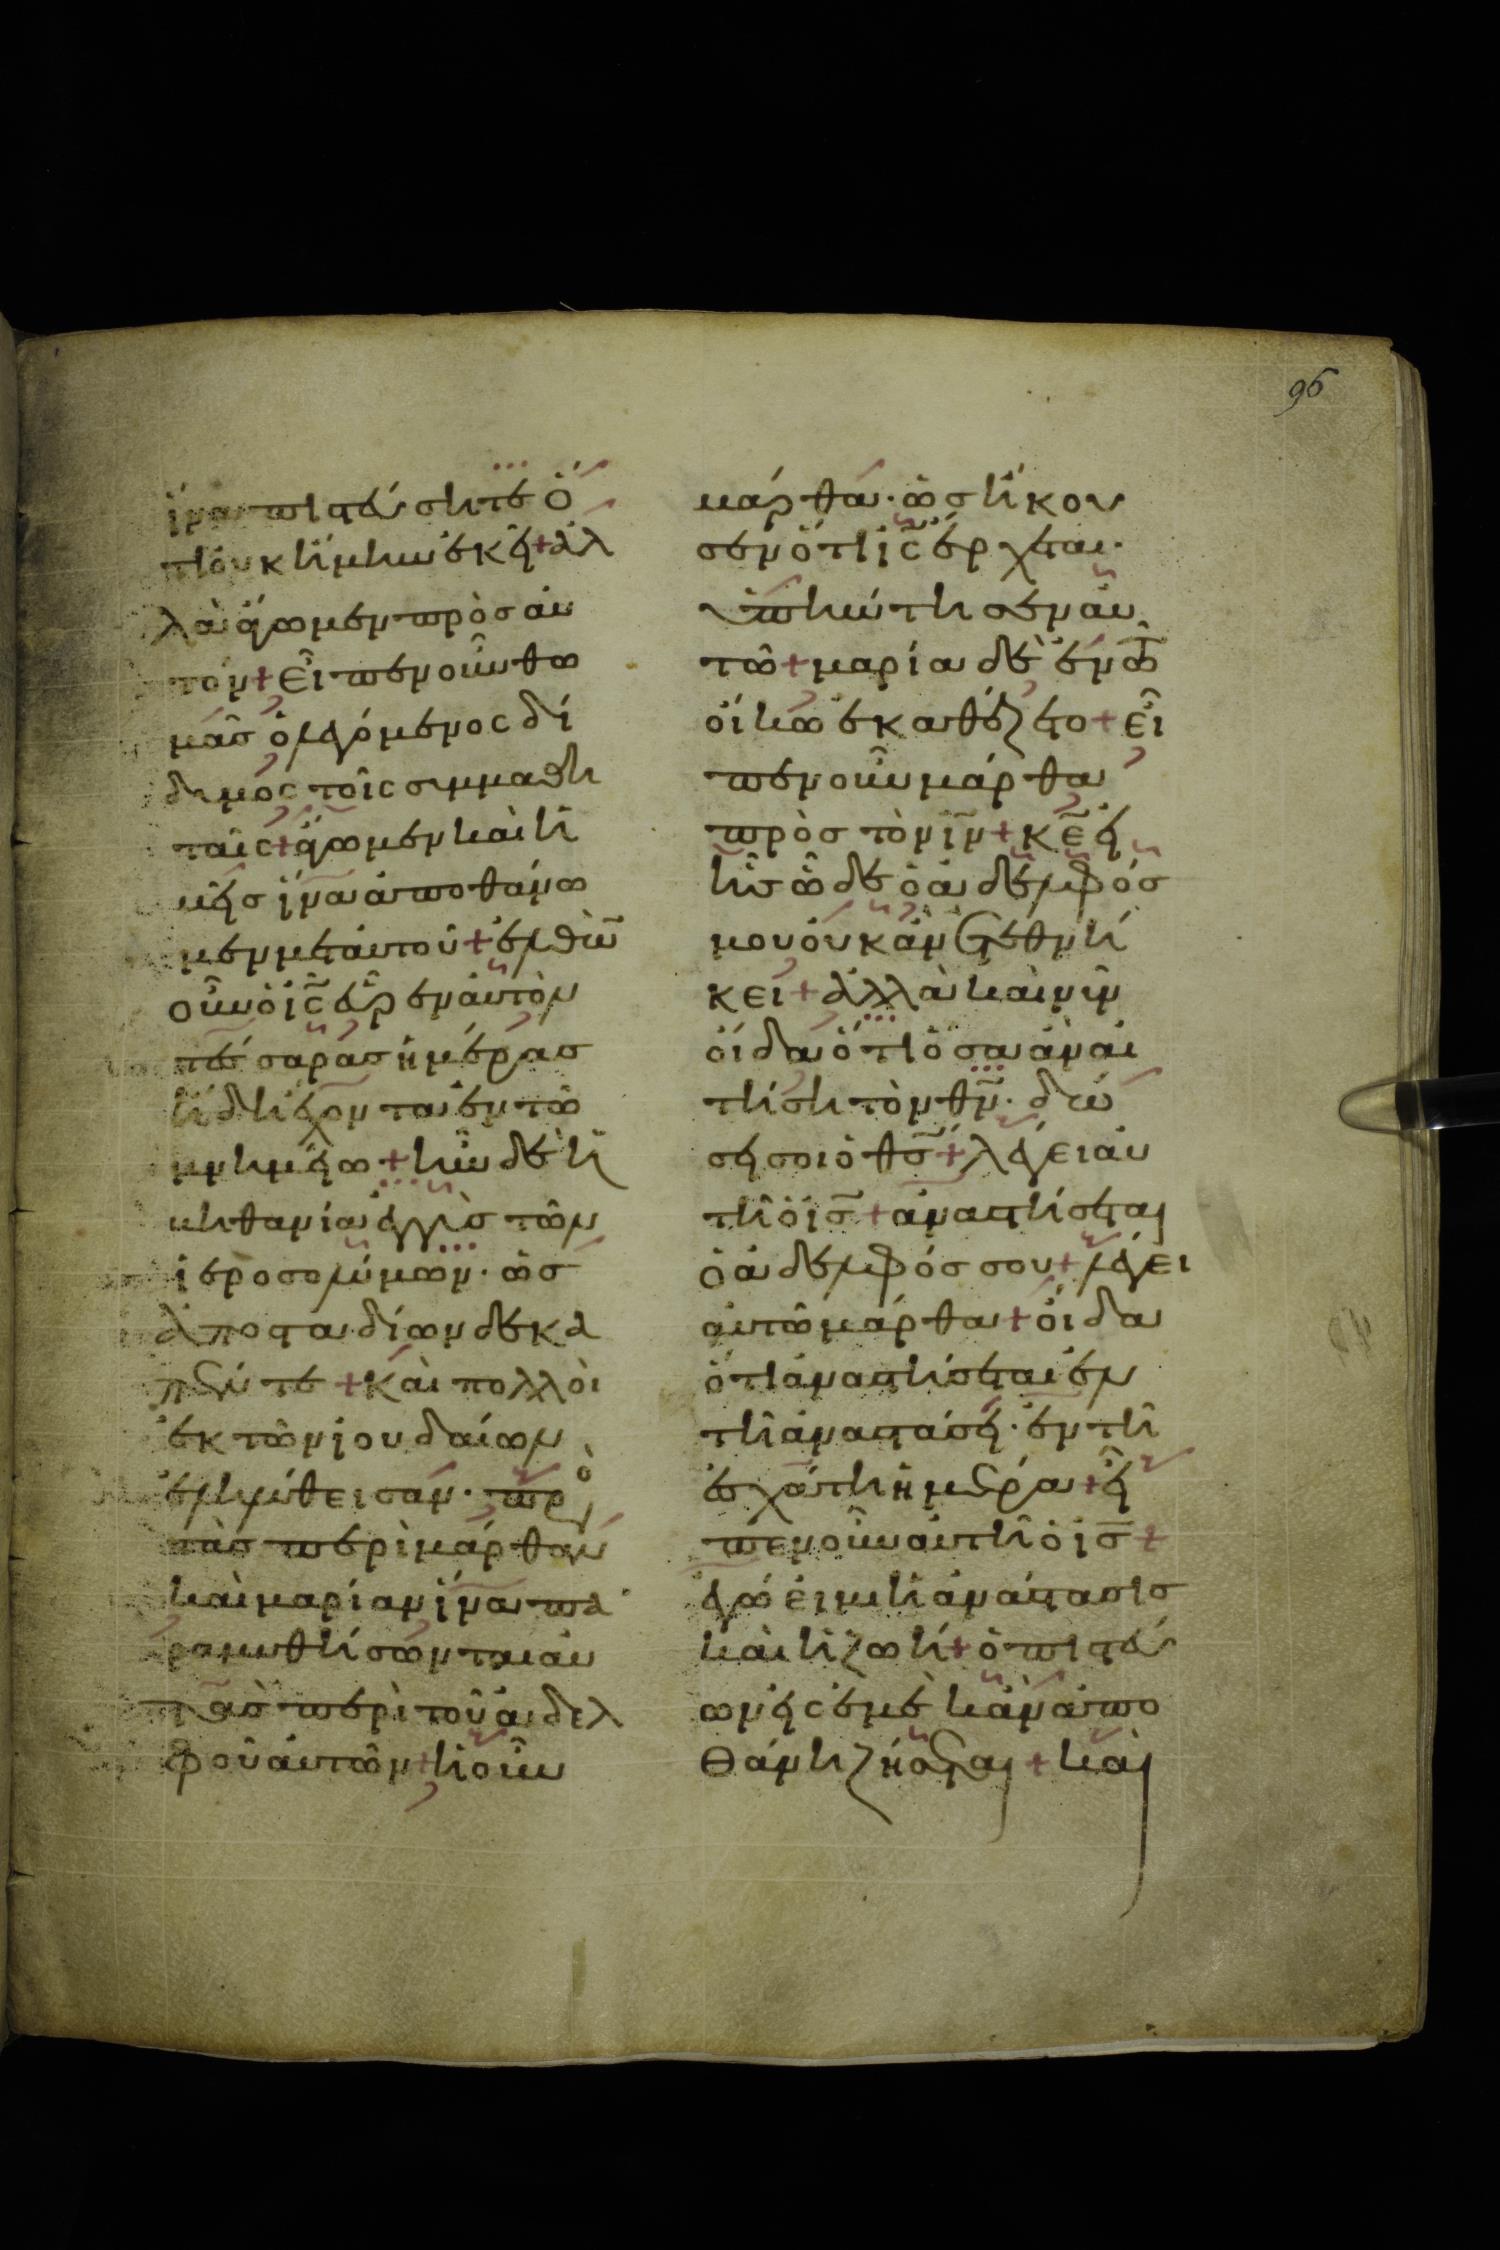 96
ἵνα πιστεύσητε ὅ
τι οὐκ ἤμην ἐκεῖ + ἀλ
λὰ ἄγωμεν πρὸς αυ
τόν + εἶπεν οὖν θω
μᾶς ὁ λεγόμενος δί
δυμος τοῖς συμμαθη
ταῖς + ἄγωμεν καὶ ἡ
μεῖς ἵνα ἀποθάνω
μεν μετ αὐτοῦ + ἐλθὼ̅
οὖν ὁ ις̅ εὗρεν αὐτὸν
τέσσαρας ἡμέρας
ἤδη ἔχοντα ἐν τῶ
μνημείω + ἦν δὲ ἡ
βηθανία ἐγγὺς τῶν
ἱεροσολύμων · ὡς
ἀπο σταδίων δεκα
πέντε + καὶ πολλοὶ
ἐκ τῶν ἰουδαίων
ἐληλύθεισαν · πρὸ
τὰς περὶ μάρθαν
καὶ μαρίαν ἵνα πα
ραμυθήσωνται αυ
τὰς περὶ τοῦ ἀδελ
φοῦ αὐτῶν + ἡ οὖν
μάρθα · ὡς ἤκου
σεν ὅτι ις̅ ἔρχεται ·
ὑπήντησεν αὐ
τῶ + μαρία δὲ ἐν τῶ
οἴκω ἐκαθέζετο + εἶ
πεν οὖν μάρθα
πρὸς τὸν ιν̅ + κε̅ εἰ
ἦς ὧδε ὁ ἀδελφός
μου οὐκ ἂν ἐτεθνή
κει + ἀλλὰ καὶ νῦν
οἶδα ὅτι ὅσα ἂν αἰ
τήση τὸν θν̅ · δώ
σει σοι ὁ θς̅ + λέγει αυ
τῆ ὁ ις̅ + ἀναστήσεται
ὁ ἀδελφός σου + λέγει
αὐτῶ μάρθα + οἶδα
ὅτι ἀναστήσεται ἐν
τῆ ἀναστάσει · ἐν τῆ
ἐσχάτη ἡμέρα + εἶ
πεν οὖν αὐτῆ ὁ ις̅ +
ἐγώ εἰμι ἡ ἀνάστασις
καὶ ἡ ζωή + ὁ πιστεύ
ων εἰς ἐμὲ κἂν ἀπο
θάνη ζήσεται + καὶ